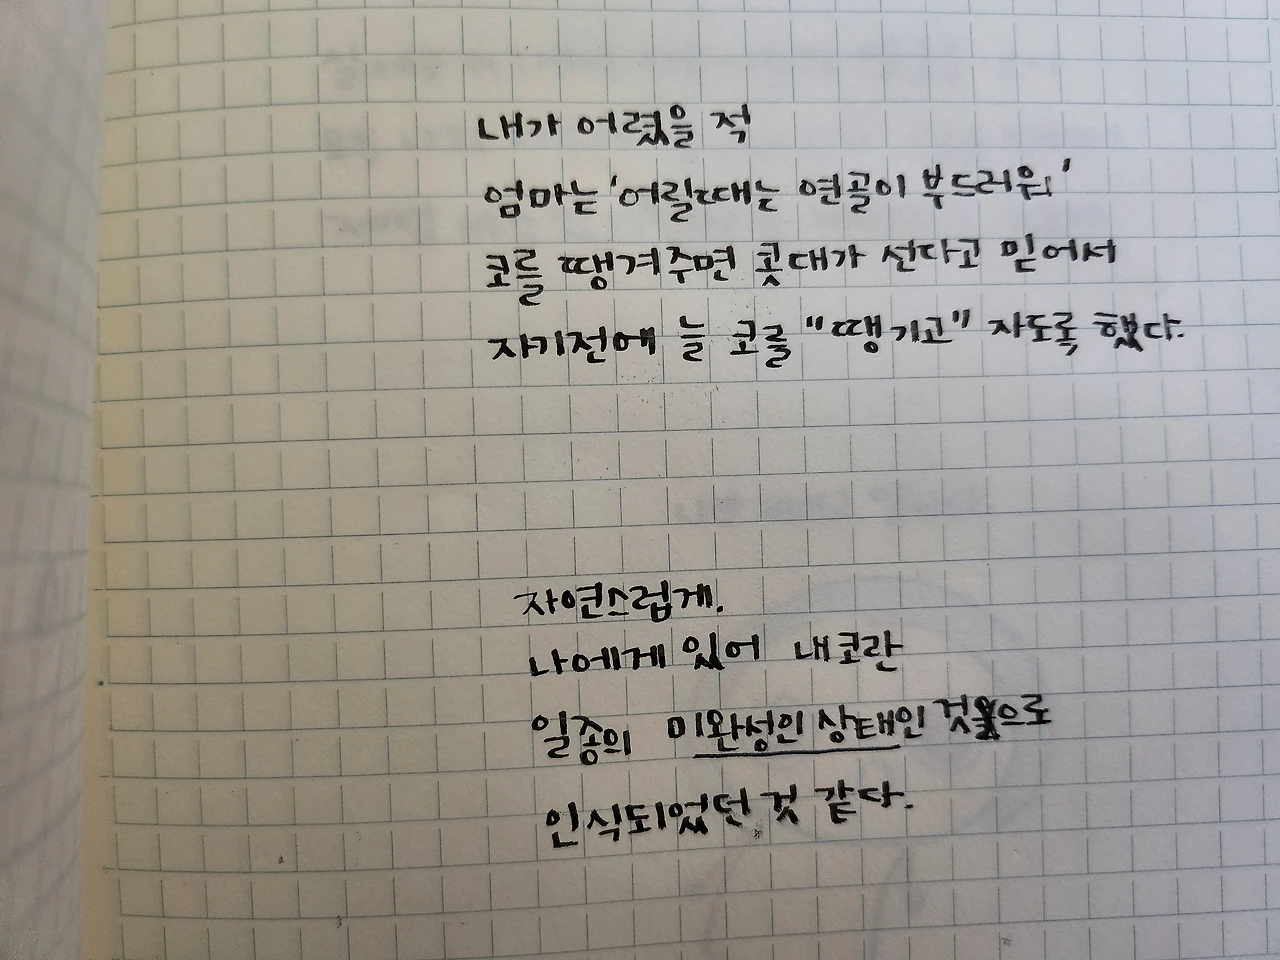 내가 어렸을 적
엄마는 '어릴때는 연골이 부드러워'
코를 땡겨주면 콧대가 선다고 믿어서
자기전에 늘 코를 "땡기고" 자도록 했다.
자연스럽게.
나에게 있어 내코란
일종의 미완성인 상태인 것으로
인식되었던 것 같다.